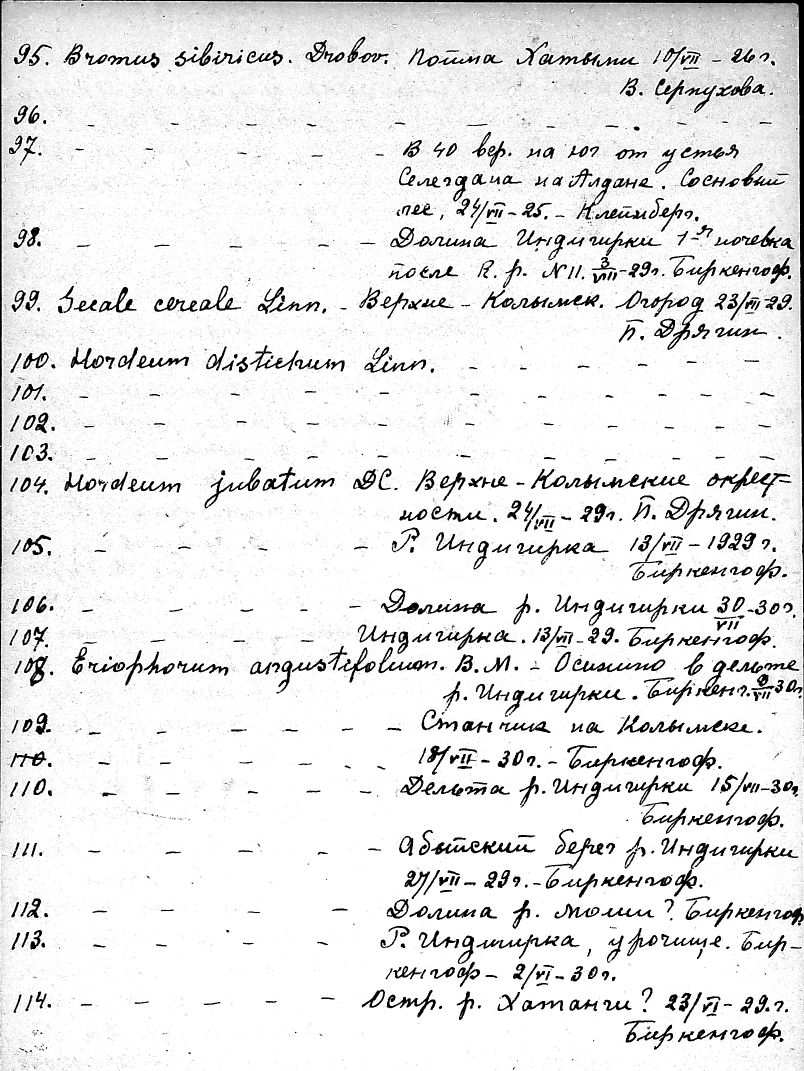 95. Bromus sibiricus. Drobov. Пойма Хатыми 10/VII - 26 г.
В. Серпухова.
96. - - - - - - - - - -
97. - - - - - - В 40 вер. на юг от устья
Селегдапа на Алдане. Сосновый
лес, 24/VII - 25. - Клеймберг.
98. - - - - - - Долина Индигирки 1-я ночевка
после R. p. N 11. 3/VIII - 29 г. Биркенгоф.
99. Secale cereale Linn. - Верхне - Колымск. Огород 23/VII 29.
П. Дрягин.
100. Hordeum distichum Linn. - - - - - -
101. - - - - - - - - - -
102. - - - - - - - - - -
103. - - - - - - - - - -
104. Hordeum jubatum DC. Верхне - Колымские окрест-
ности. 24/VII - 29 г. П. Дрягин.
105. - - - - Р. Индигирка 13/VII - 1929 г.
Биркенгоф.
106. - - - - - Долина р. Индигирки 30/VII - 30 г.
107. - - - - Индигирка. 13/VII - 29. Биркенгоф.
108. Eriophorum angustifolium. В. М. - Осихино в дельте
р. Индигирки. Биркенг. VII 30 г.
109. - - - - - - Станчик на Колымске.
110. - - - - - - 18/VII - 30 г. - Биркенгоф.
110. - - - - - - Дельта р. Индигирки 15/VII - 30 г.
Биркенгоф.
111. - - - - - Абытский берег р. Индигирки
27/VII - 29 г. - Биркенгоф.
112. - - - - - Долина р. Момы? Биркенгоф.
113. - - - - - Р. Индигирка, урочище. Бир-
кенгоф - 2/VI - 30 г.
114. - - - - - Остр. р. Хатанги? 23/VI - 29. г.
Биркенгоф.